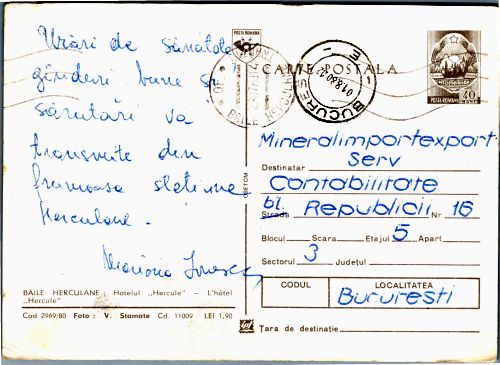 Urări de sănătate
gânduri bune și
sărutări vă
transmite din
frumoasa stațiune
Herculane.
Mariana Ionescu
BAILE HERCULANE : Hotelul ,,Hercule" — L'hôtel
,,Hercule"
Cod 2969/80 Foto : V. Stamate Cd. 11009 LEI 1,90
POSTA ROMANA
BAILE HERCULANE
CARTE POSTALA
BUCURESTI
01.8.80.22
POSTA ROMANA
40
Mineralimportexport
Serv
Destinatar Contabilitate
bl.
Strada Republicii Nr 16
Blocul Scara Etajul 5 Apart
Sectorul 3 Județul
CODUL LOCALITATEA
București
Țara de destinație